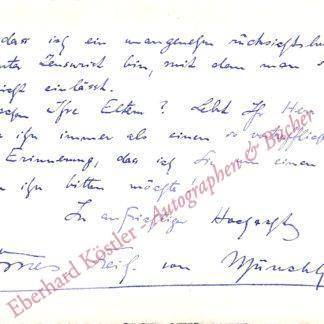 dass ich ein unangenehm rücksichtslo
bin, mit dem man
nicht einlässt.
Ihre Eltern? Lebt Ihr Her
ihn immer als einen so
Erinnerung, das ich Sie um einen
ihn bitten möchte!
In aufrichtiger Hochacht
von Münchh
Eberhard Köstler - Autographen & Bücher